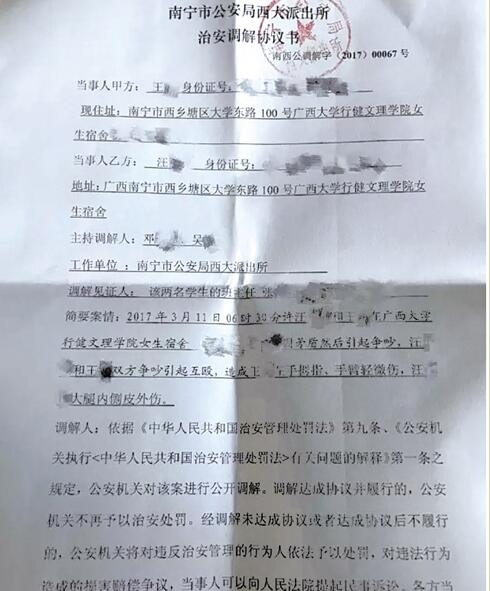 南宁市公安局西大派出所
治安调解协议书
南西公调解字（2017）00067 号
当事人甲方： 王 身份证号：
现住址：南宁市西乡塘区大学东路 100 号广西大学行健文理学院女
生宿舍
当事人乙方： 汪 身份证号：
地址：广西南宁市西乡塘区大学东路 100 号广西大学行健文理学院女
生宿舍
主持调解人：邓 、吴
工作单位 ：南宁市公安局西大派出所
调解见证人： 该两名学生的班主任 张
简要案情：2017 年 3 月 11 日 06 时 30 分许汪 和王 在广西大学
行健文理学院女生宿舍 因矛盾然后引起争吵，汪
和王 双方争吵引起互殴，造成王 手拇指、手臂轻微伤，汪
大腿内侧皮外伤。
调解人：依据《中华人民共和国治安管理处罚法》第九条、《公安机
关执行<中华人民共和国治安管理处罚法>有关问题的解释》第一条之
规定，公安机关对该案进行公开调解。调解达成协议并履行的，公安
机关不再予以治安处罚。经调解未达成协议或者达成协议后不履行
的，公安机关将对违反治安管理的行为人依法予以处罚，对违法行为
造成的损害赔偿争议，当事人可以向人民法院提起民事诉讼。各方当